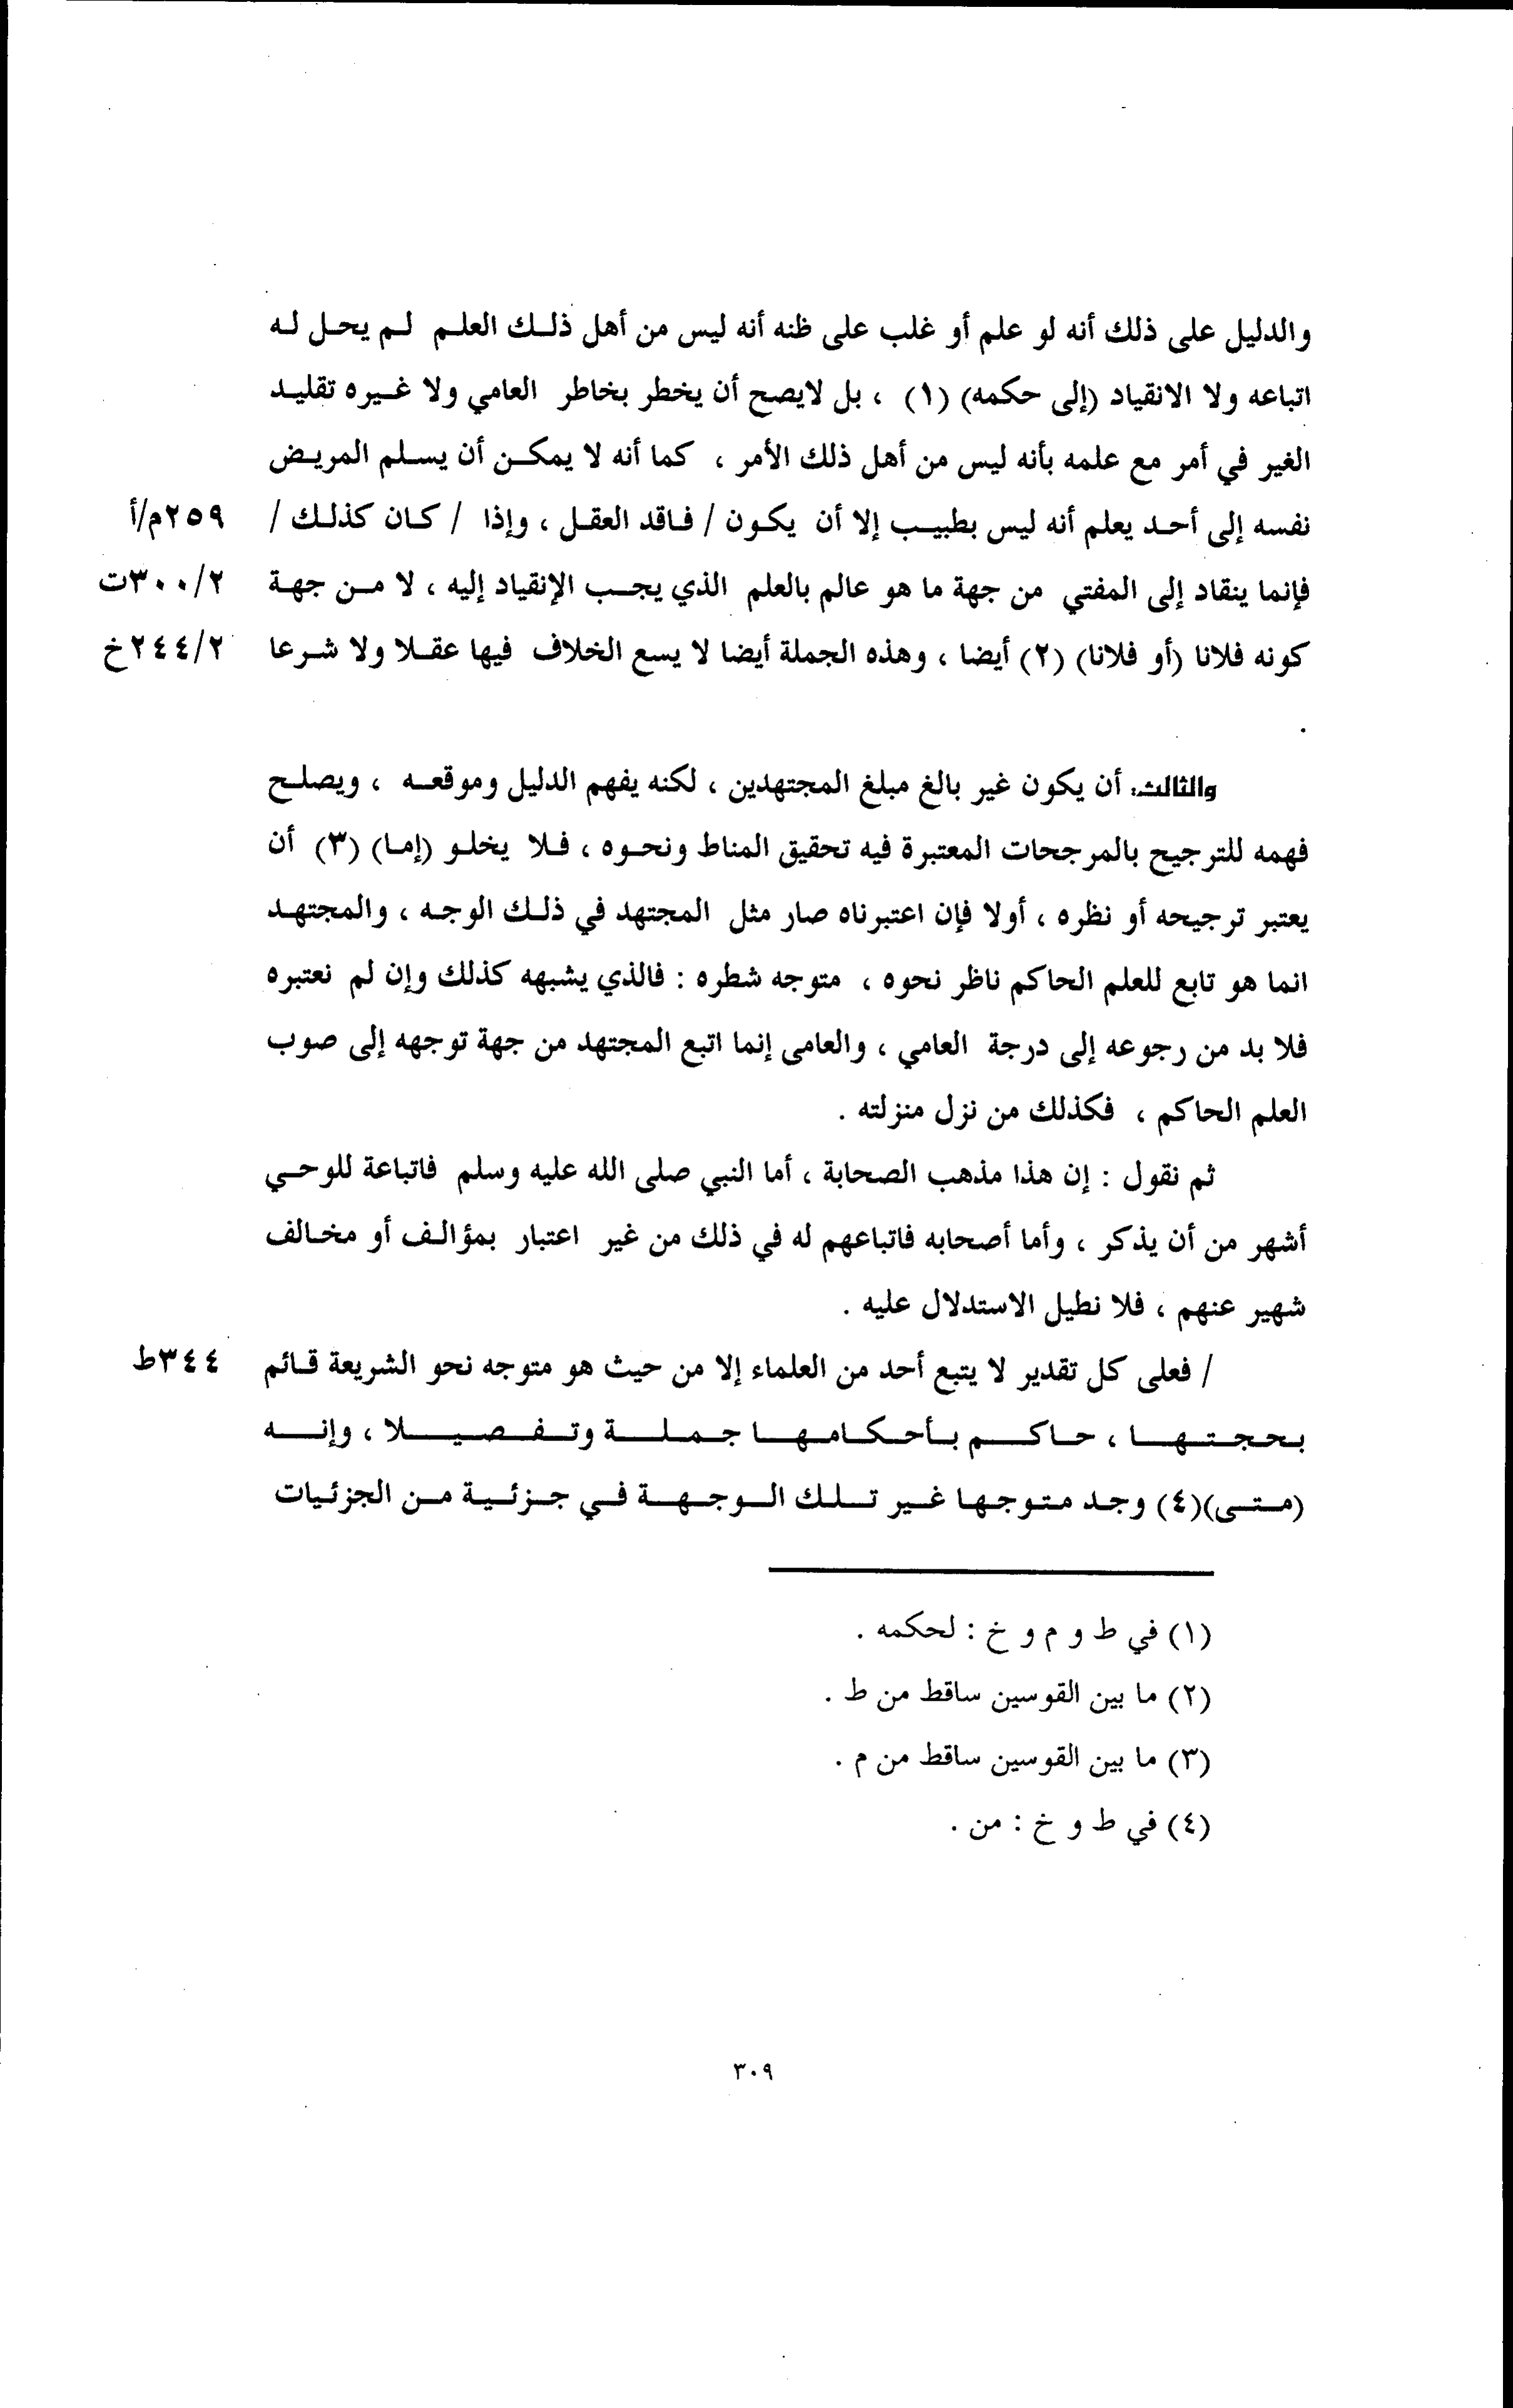 والدليل على ذلك أنه لو علم أو غلب على ظنه أنه ليس من أهل ذلك العلم لم يحل له
اتباعه ولا الانقياد (إلى حكمه) (١) ، بل لايصح أن يخطر بخاطر العامي ولا غيره تقليد
الغير في أمر مع علمه بأنه ليس من أهل ذلك الأمر ، كما أنه لا يمكن أن يسلم المريض
نفسه إلى أحد يعلم أنه ليس بطبيب إلا أن يكون / فاقد العقل ، وإذا / كان كذلك / ٢٥٩م/أ
فإنما ينقاد إلى المفتي من جهة ما هو عالم بالعلم الذي يجب الإنقياد إليه ، لا من جهة ٣٠٠/٢ت
كونه فلانا (أو فلانا) (٢) أيضا ، وهذه الجملة أيضا لا يسع الخلاف فيها عقلا ولا شرعا ٢٤٤/٢خ
.
والثالث: أن يكون غير بالغ مبلغ المجتهدين ، لكنه يفهم الدليل وموقعه ، ويصلح
فهمه للترجيح بالمرجحات المعتبرة فيه تحقيق المناط ونحوه ، فلا يخلو (إما) (٣) أن
يعتبر ترجيحه أو نظره ، أولا فإن اعتبرناه صار مثل المجتهد في ذلك الوجه ، والمجتهد
انما هو تابع للعلم الحاكم ناظر نحوه ، متوجه شطره : فالذي يشبهه كذلك وإن لم نعتبره
فلا بد من رجوعه إلى درجة العامي ، والعامى إنما اتبع المجتهد من جهة توجهه إلى صوب
العلم الحاكم ، فكذلك من نزل منزلته .
ثم نقول : إن هذا مذهب الصحابة ، أما النبي صلى الله عليه وسلم فاتباعة للوحي
أشهر من أن يذكر ، وأما أصحابه فاتباعهم له في ذلك من غير اعتبار بمؤالف أو مخالف
شهير عنهم ، فلا نطيل الاستدلال عليه .
/ فعلى كل تقدير لا يتبع أحد من العلماء إلا من حيث هو متوجه نحو الشريعة قائم ٣٤٤ط
بحجتها ، حاكم بأحكامها جملة وتفصيلا ، وإنه
(متى)(٤) وجد متوجها غير تلك الوجهة في جزئية من الجزئيات
(١) في ط و م و خ : لحكمه .
(٢) ما بين القوسين ساقط من ط .
(٣) ما بين القوسين ساقط من م .
(٤) في ط و خ : من .
٣٠٩